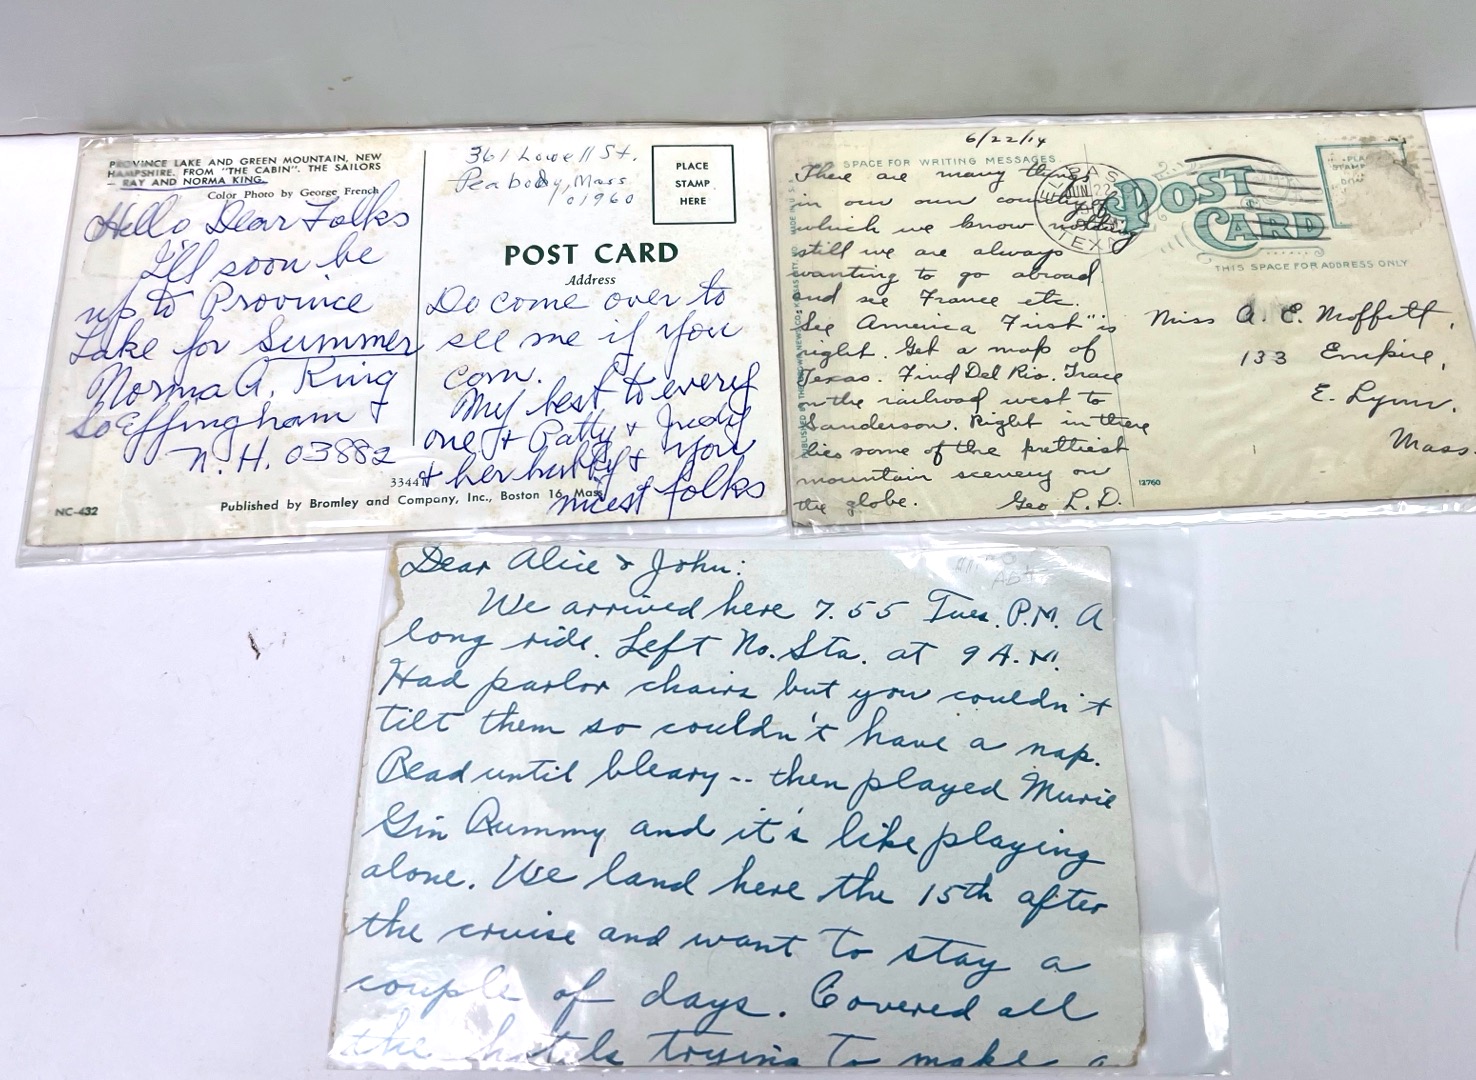 PROVINCE LAKE AND GREEN MOUNTAIN, NEW
HAMPSHIRE. FROM "THE CABIN". THE SAILORS
— RAY AND NORMA KING.
Color Photo by George French
Hello Dear Folks
I'll soon be
up to Province
Lake for Summer
Norma A. King
So Effingham
N. H. 03882
33447
Published by Bromley and Company, Inc., Boston 16, Mass.
NC-432
361 Lowell St.
Peabody, Mass
01960
PLACE
STAMP
HERE
POST CARD
Address
Do come over to
see me if you
can.
My best to every
one + Patty + Judy
+ her hubby + you
nicest folks
6/22/14
SPACE FOR WRITING MESSAGES
There are many things
in our own country of
which we know nothing
still we are always
wanting to go abroad
and see France etc.
"See America First" is
right. Get a map of
Texas. Find Del Rio. Trace
on the railroad west to
Sanderson. Right in there
lies some of the prettiest
mountain scenery on
the globe. Geo L. D.
JUN 22
TEX
POST
CARD
THIS SPACE FOR ADDRESS ONLY
Miss A. E. Moffett,
133 Empire,
E. Lynn.
Mass.
12760
Dear Alice & John:
We arrived here 7.55 Tues. P.M. A
long ride. Left No. Sta. at 9 A.M.
Had parlor chairs but you couldn't
tilt them so couldn't have a nap.
Read until bleary -- then played Murie
Gin Rummy and it's like playing
alone. We land here the 15th after
the cruise and want to stay a
couple of days. Covered all
the hotels trying to make a